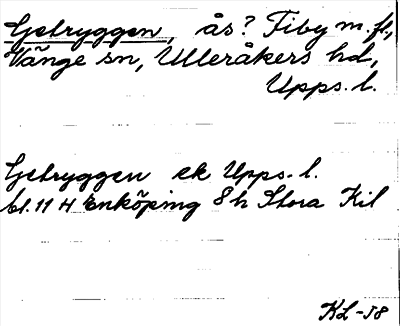 Getryggen, ås? Tiby m.fl.,
Vänge sn, Ulleråkers hd,
Upps. l.
Getryggen ek Upps. l.
bl. 11 H Enköping 8h Stora Kil
KL-58